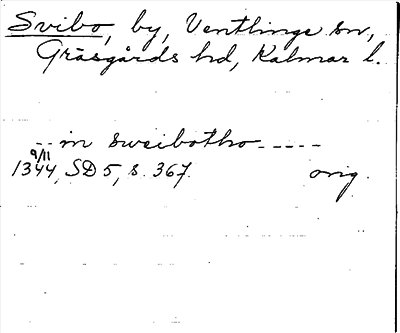 Svibo, by, Ventlinge sn,
Gräsgårds hd, Kalmar l.
-- in sweibotho -----
9/11
1344, SD 5, s. 367. orig.